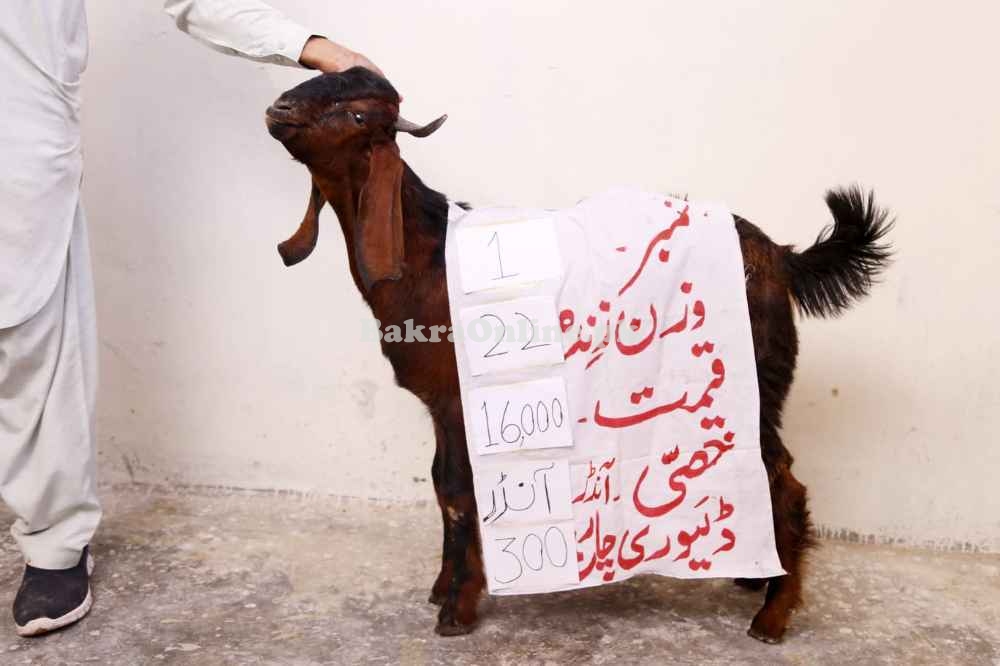 نمبر۔ 1
وزن زندہ 22
قیمت۔ 16,000
خصّی۔آنڈر آنڈر
ڈلیوری چارج 300
BakraOnline